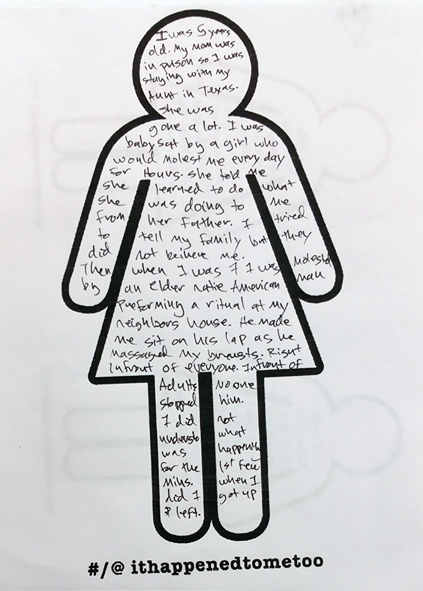 I was 5 years
old. My mom was
in prison so I was
staying with my
Aunt in Texas.
She was
gone a lot. I was
babysat by a girl who
would molest me every day
for Hours. She told me
she learned to do what
she was doing to me
from her Father. I tried
to tell my family but they
did not believe me.
Then when I was 7 I was molested
by an elder Natie American man
Preforming a ritual at my
neighbors house. He made
me sit on his lap as he
massaged my breasts. Right
infront of everyone. Infront of
Adults No one
stopped him.
I did not
understa what
was happening
For the 1st few
Mins. when I
did I got up
& left.
#/@ ithappenedtometoo